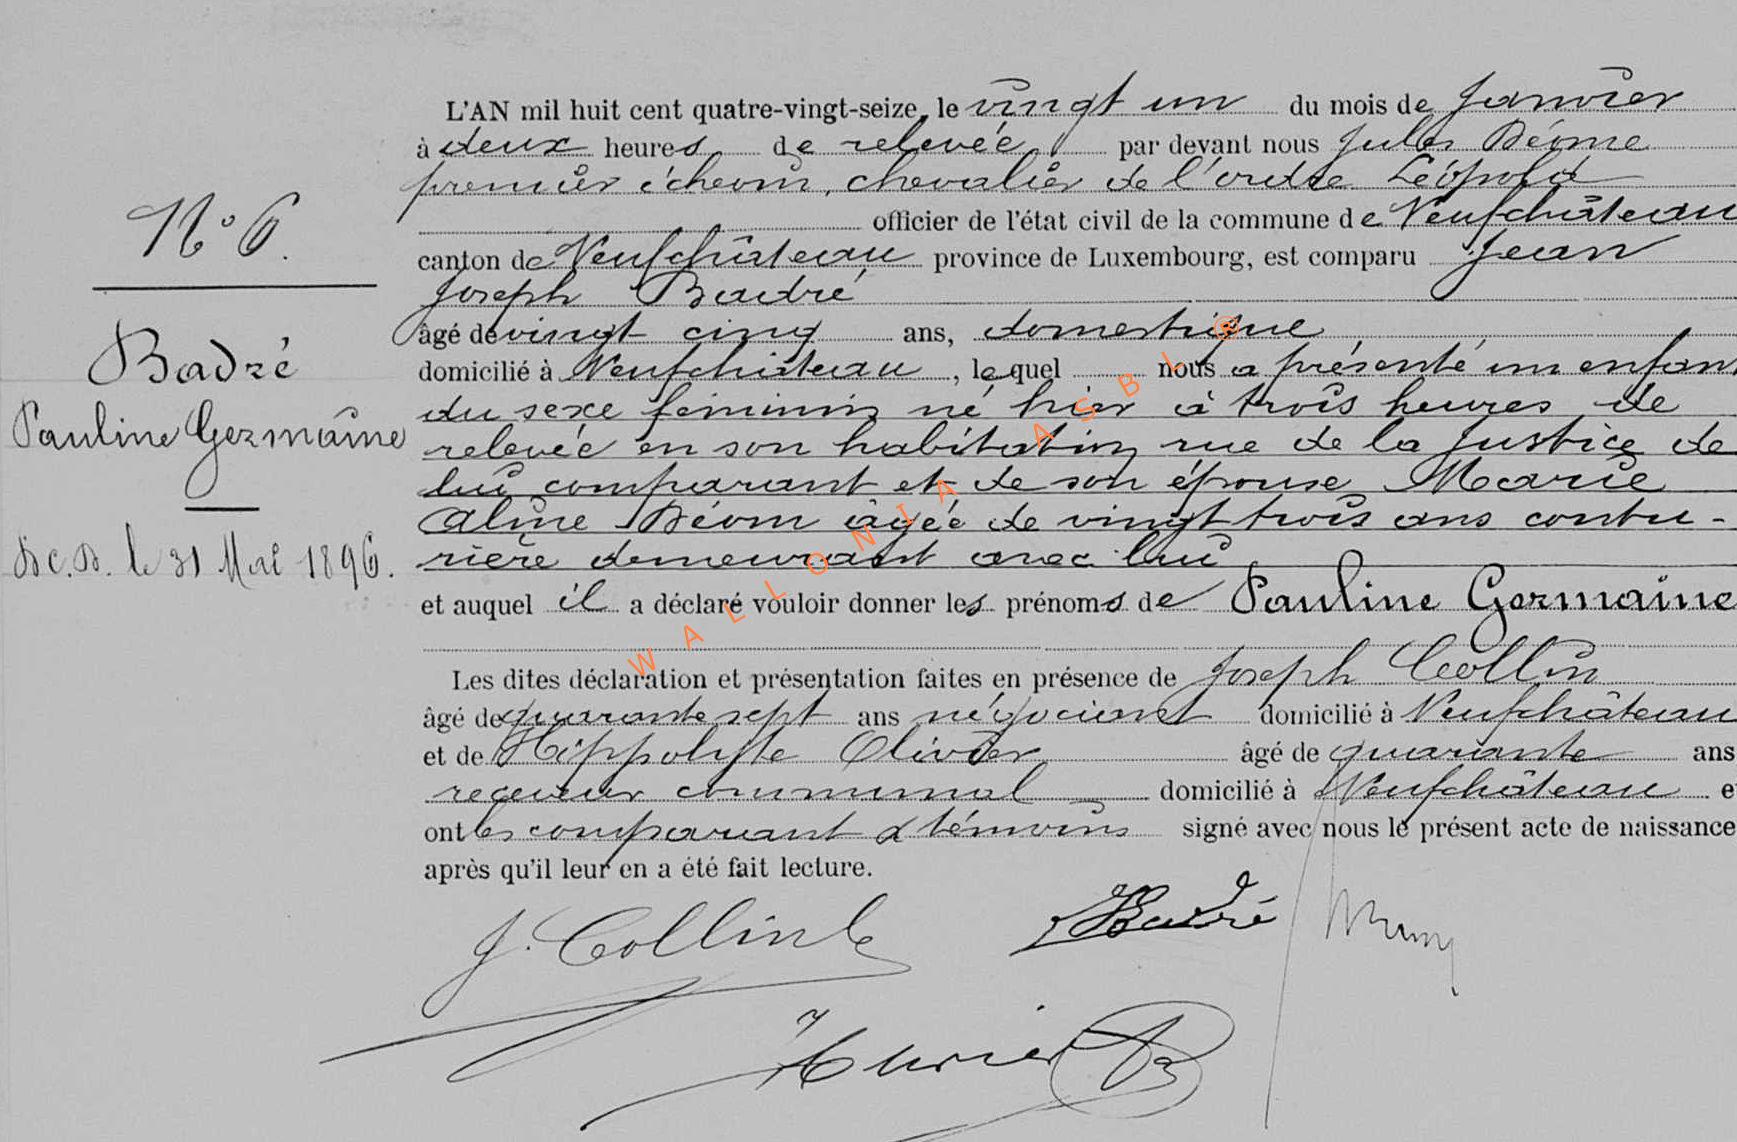 N° 6.
Badré
Pauline Germaine
le 31 Mai 1896.
L'AN mil huit cent quatre-vingt-seize, le vingt un du mois de Janvier
à deux heures de relevée, par devant nous Jules
premier échevin, chevalier de l'ordre Léopold
officier de l'état civil de la commune de Neufchâteau
canton de Neufchâteau province de Luxembourg, est comparu Jean
Joseph Badré
âgé de vingt cinq ans, domestique
domicilié à Neufchâteau, lequel nous a présenté un enfant
du sexe féminin né hier à trois heures de
relevée en son habitation rue de la Justice de
lui comparant et de son épouse Marie
Aline Déom âgée de vingt trois ans coutu-
rière demeurant avec lui
et auquel il a déclaré vouloir donner les prénoms de Pauline Germaine
Les dites déclaration et présentation faites en présence de Joseph Collin
âgé de quarante sept ans négociant domicilié à Neufchâteau
et de Hippolyte Olivier âgé de quarante ans
receveur communal domicilié à Neufchâteau e
ont les comparant & témoins signé avec nous le présent acte de naissance
après qu'il leur en a été fait lecture.
J. Collin Badré
WALLONIA ASBL ®